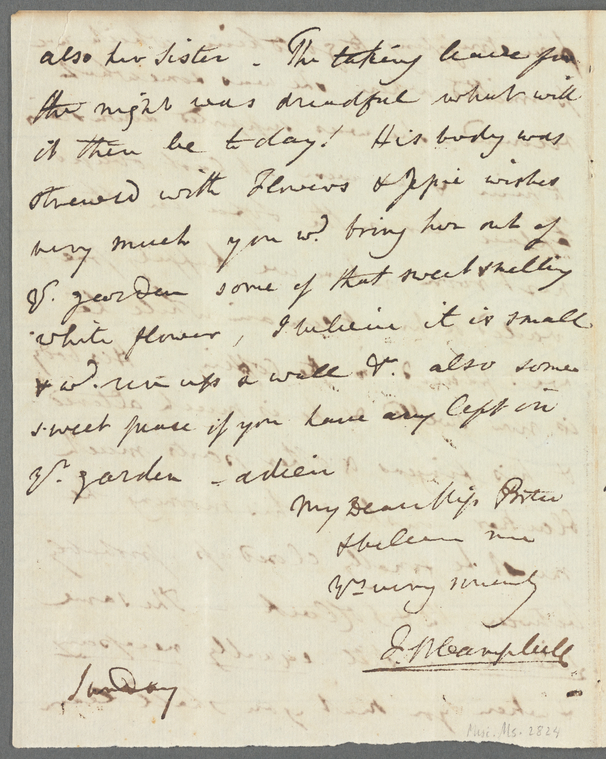 also her Sister - The taking leave for
the night was dreadful what will
it then be today! His body was
strewed with Flowers & Jessie wishes
very much you wd. bring her out of
Yr. garden some of that sweet smelling
white flower, I believe it is small
& wd. run up a wall &c. also some
sweet pease if you have any left in
Yr. garden - adieu
My Dear Miss Porter
& believe me
Yrs very sincerely
Campbell
Sunday
Misc. Ms. 2824